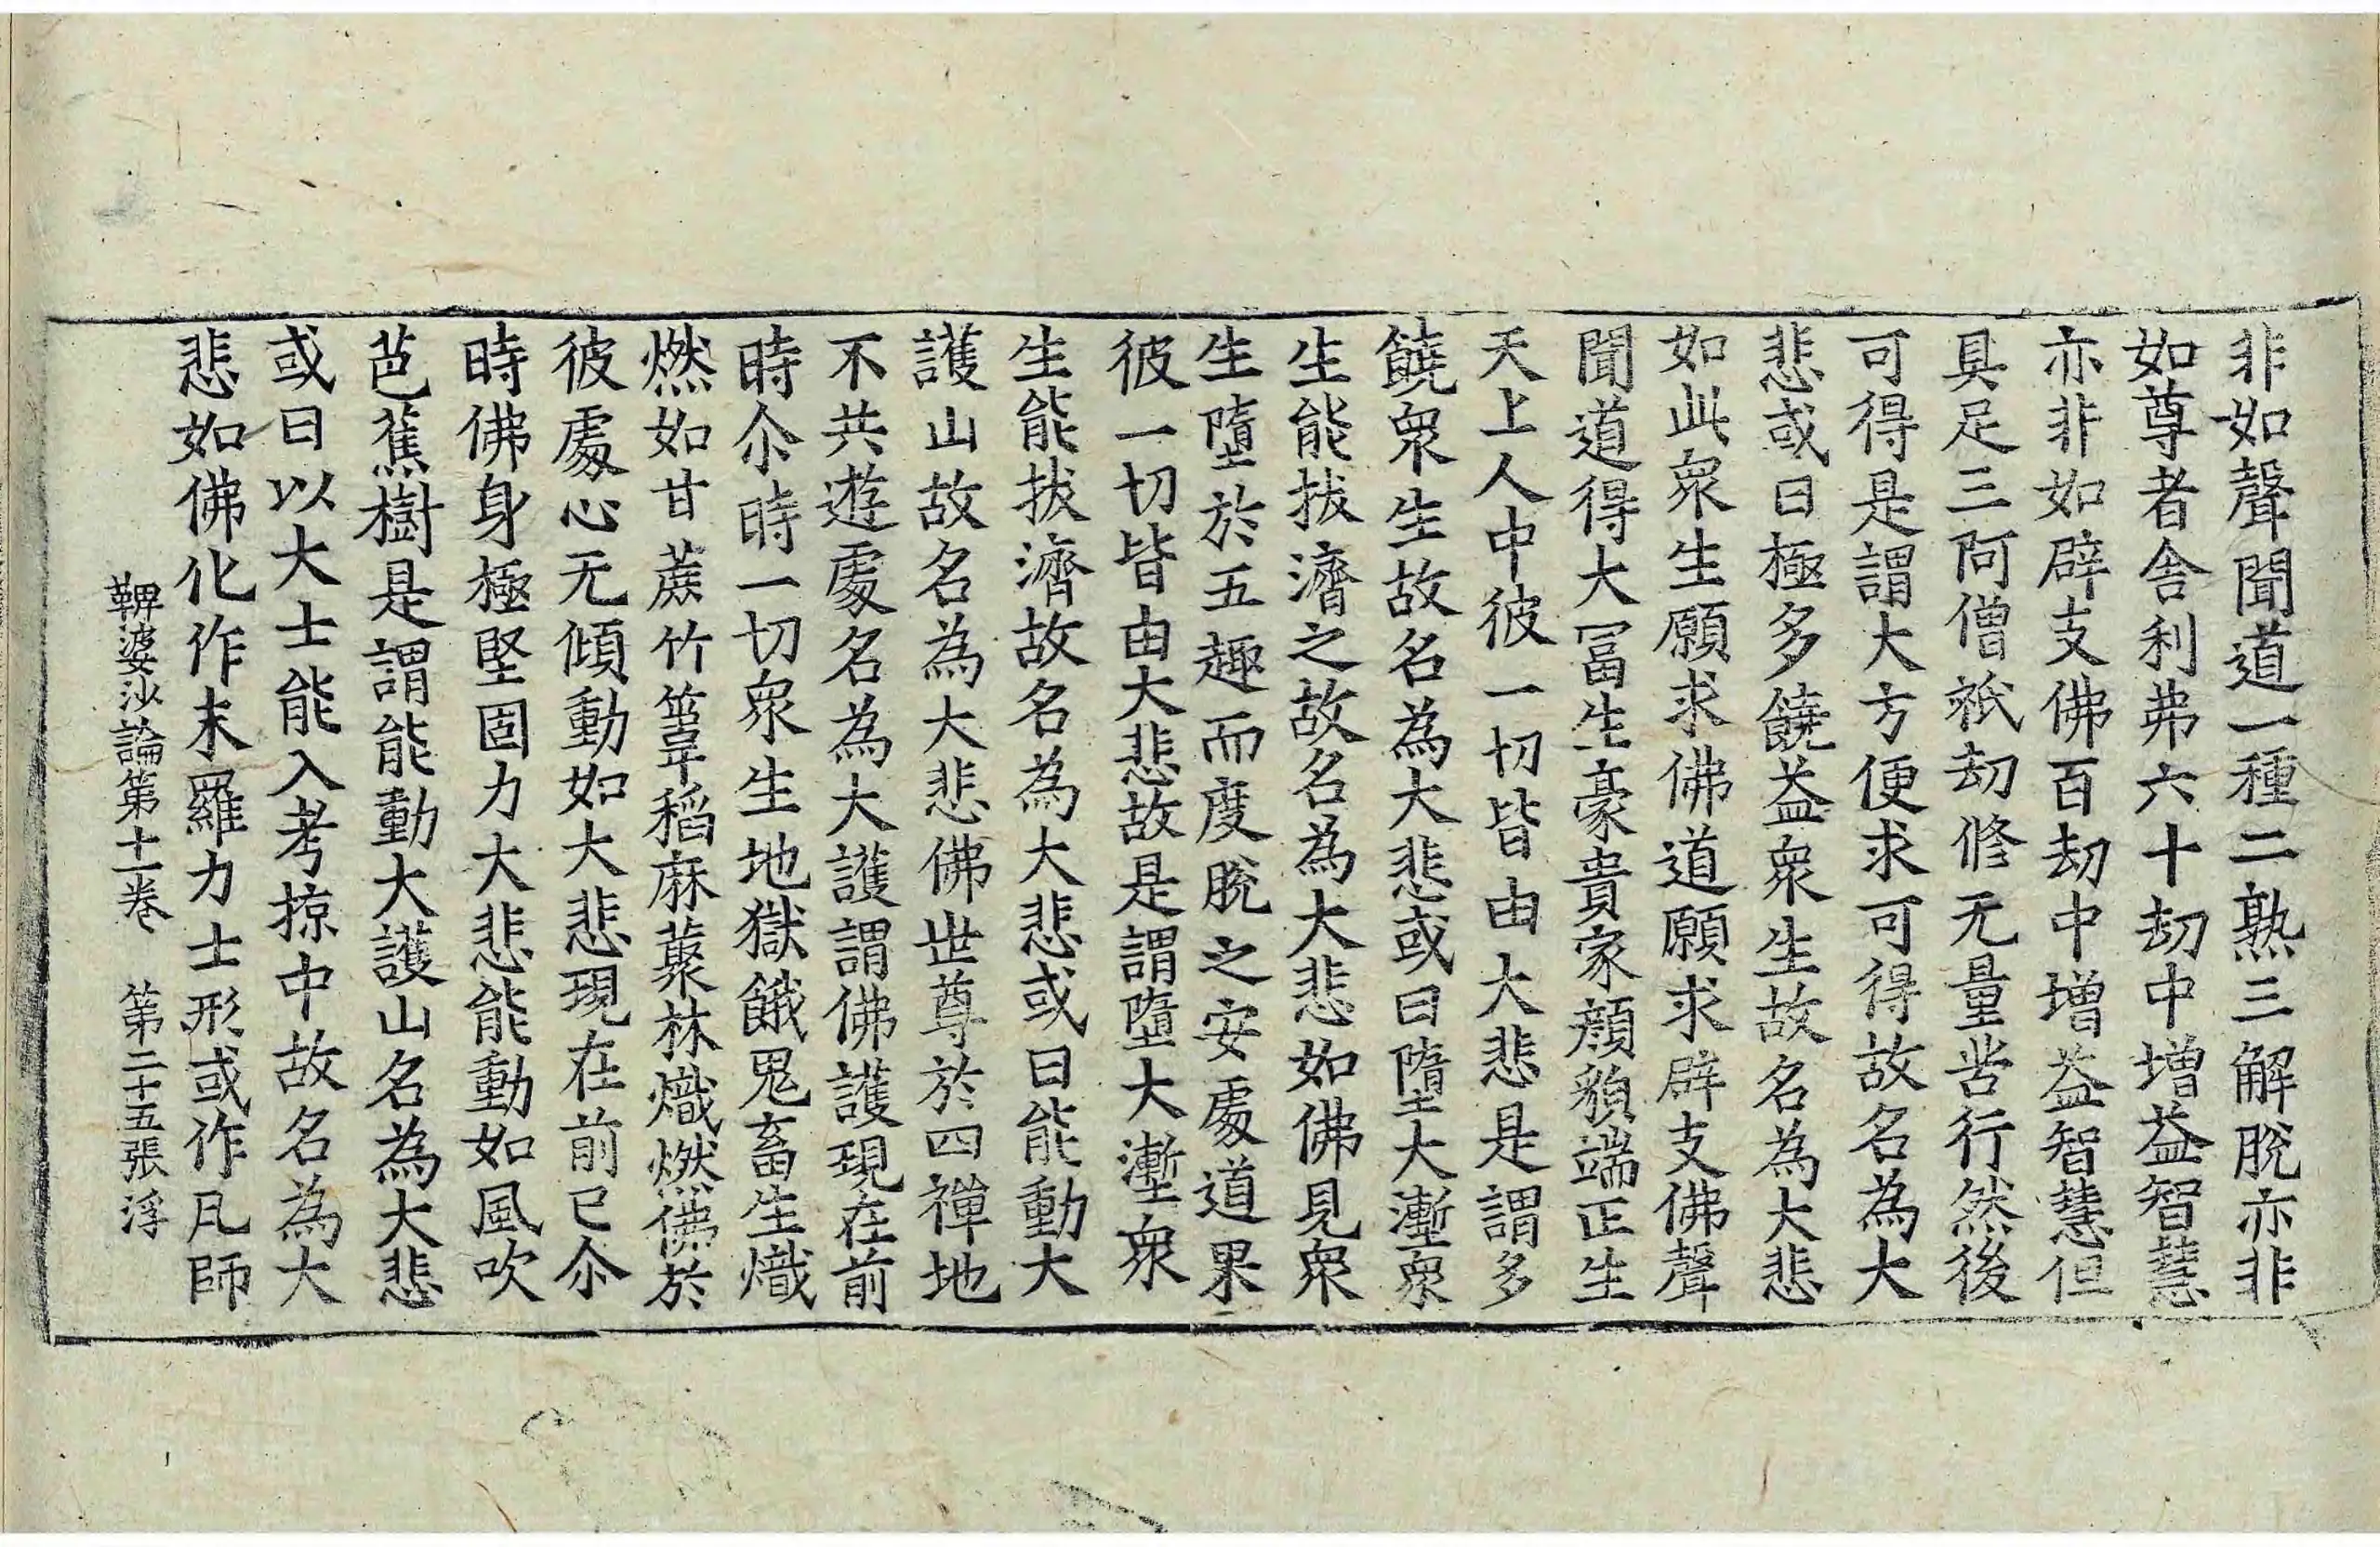 非如聲聞道一種二熟三解脫亦非
如尊者舎利弗六十劫中增益智慧
亦非如辟支佛百劫中增益智慧但
具足三阿僧祇劫修无量苦行然後
可得是謂大方便求可得故名為大
悲或曰極多饒益眾生故名為大悲
如此眾生願求佛道願求辟支佛聲
聞道得大冨生豪貴家顔貌端正生
天上人中彼一切皆由大悲是謂多
饒眾生故名為大悲或曰墮大塹眾
生能拔濟之故名為大悲如佛見眾
生墮於五趣而度脫之安處道果
彼一切皆由大悲故是謂墮大塹眾
生能拔濟故名為大悲或曰能動大
護山故名為大悲佛世尊於四禪地
不共遊處名為大護謂佛護現在前
時尒時一切眾生地獄餓鬼畜生熾
燃如甘蔗竹葦稻麻藂林熾燃佛於
彼處心无傾動如大悲現在前已尒
時佛身極堅固力大悲能動如風吹
芭蕉樹是謂能動大護山名為大悲
或曰以大士能入考掠中故名為大
悲如佛化作末羅力士形或作凡師
鞞婆沙論第十一卷　第二十五張　浮